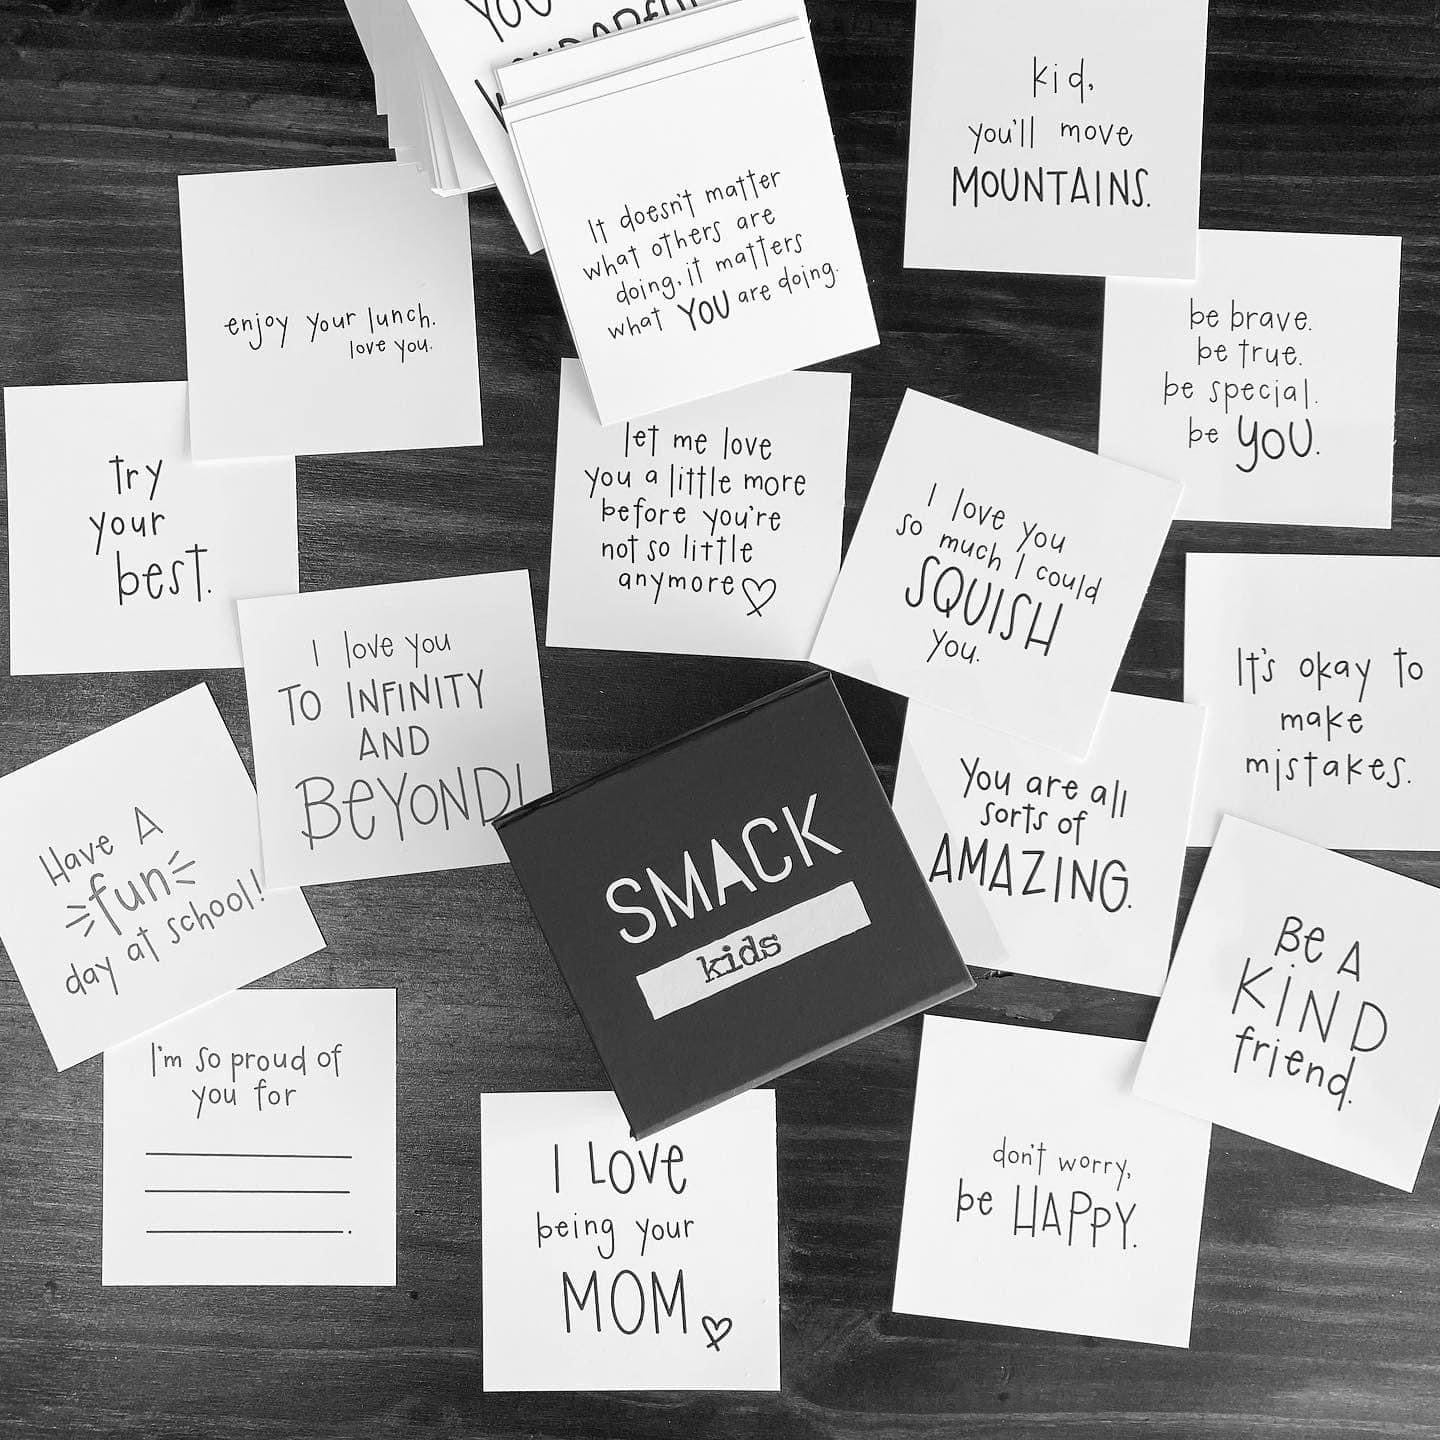 YOU
It doesn't matter
what others are
doing, it matters
what YOU are doing.
kid,
you'll move
MOUNTAINS.
enjoy your lunch.
love you.
be brave.
be true.
be special.
be YOU.
try
your
best.
let me love
you a little more
before you're
not so little
anymore
I love you
so much I could
SQUISH
you.
I love you
TO INFINITY
AND
BEYOND!
It's okay to
make
mistakes.
You are all
sorts of
AMAZING.
Have A
fun
day at school!
SMACK
kids
BE A
KIND
friend.
I'm so proud of
you for
I LOVE
being your
MOM
don't worry,
be HAPPY.